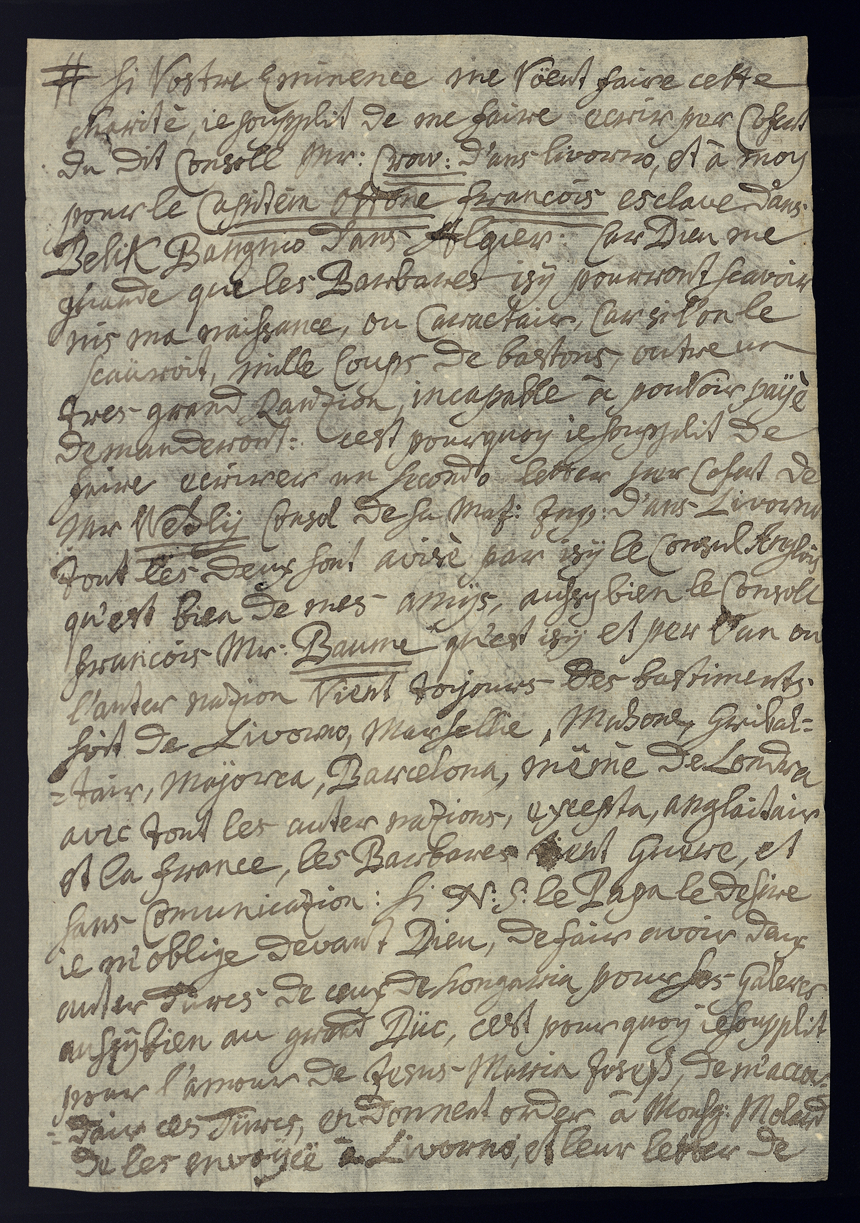 # si Vostre Eminence me Voent faire cette
charité, ie souplit de me faire ecrir par Cohert
du dit Consoll Mr: Crow: d'ans livorno, et à moy
pour le Capitéin Ottone francois esclave d'ans
Belik Bangnio d'ans Algier: Car Dieu me
guarde que les Barbares isÿ pourront scavoir
mis ma naissance, ou Caractair, Car si l'on le
scauroit, mille Coups de bastons, outre un
tres grand Ranzion, incapable à pouvoir paÿe
demanderont: c'est pourquoy ie souplit de
faire ecrirer un secondo letter per Cohert de
Mr Consol de sa Maj: Imp: d'ans Livorno
tout les deux sont avisè par isÿ le Consul Anglois
qu'est bien de mes amÿs, aussy bien le Consoll
francois Mr: Baume qu'est isÿ et per l'un ou
l'auter nazion Vient toijours des bastiments
soit de Livorno, Marsellie, Mahone, Gribal=
=tair, Majorca, Barcelona, mémè de Londra
avec tout les auter nazions, excepta, anglaitair
et la france, les Barbares tient Guere, et
sans Comunicazion: si N: S: le Papa le desire
ie m'oblige devant Dieu, de fair avoir deux
auter Turcs de ceux de hongaria pour ses Galeres
aussÿbien au grand Düc, c'est pourquoy iesouplit
pour l'amour de Jesus Maria Joseph, de m'accor=
=dair ces Türcs, en donnent order à Monsg: Molard
de les envoÿeè à Livorno, et leur letter de